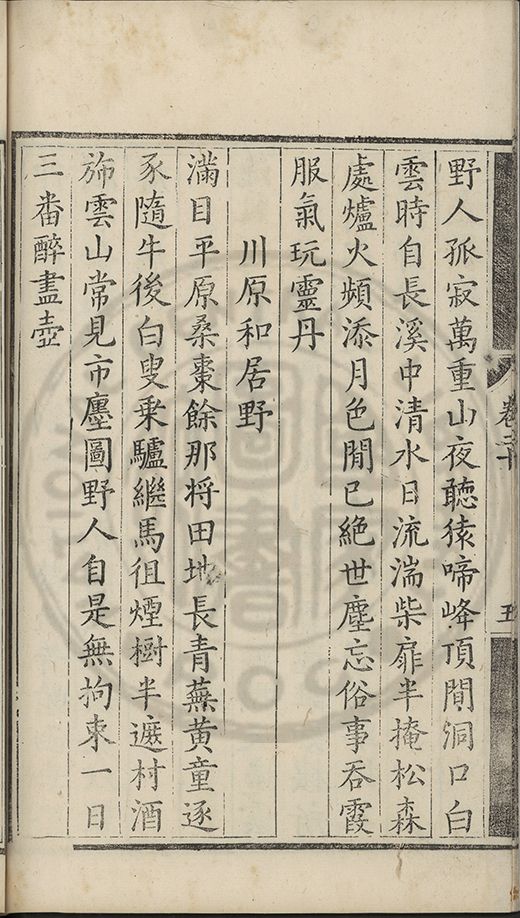 野人孤寂萬重山夜聴猿啼峰頂間洞口白
雲時自長溪中清水日流湍柴扉半掩松森
處爐火頻添月色閒已絶世塵忘俗事吞霞
服氣玩靈丹
川原和居野
滿目平原桑棗餘那将田地長青蕪黄童逐
豕隨牛後白叟乗驢繼馬徂煙樹半遮村酒
斾雲山常見市廛圖野人自是無拘束一日
三番醉盡壺
卷二十
五